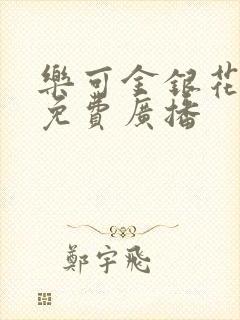 樂可金銀花
免費廣播
鄭宇飛